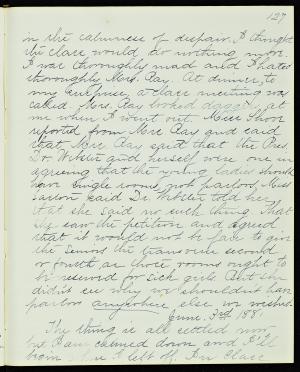 127
in the calmness of despair. I thought
the class would do nothing more.
I was thoroughly mad and I hated
thoroughly Mrs. Ray. At dinner, to
my surprise, a class meeting was
called. Mrs. Ray looked daggers at
me when I went out. Miss Shoor
reported from Mrs. Ray and said
that Mrs. Ray said that the Pres.
Dr. Webster and herself were one in
agreeing that the young ladies should
have single rooms, not parlors. Miss
said Dr. Webster told her
that she said no such thing. That
she saw the petition and agreed
that it would not be fair to give
the Seniors the transverse second
or fourth, as those rooms ought to
be reserved for sick girls. But she
didn't see why we shouldn't have
parlors anywhere else we wished.
June 3rd 188
The thing is all settled now
but I am calmed down and I'll
begin I left off. In Class